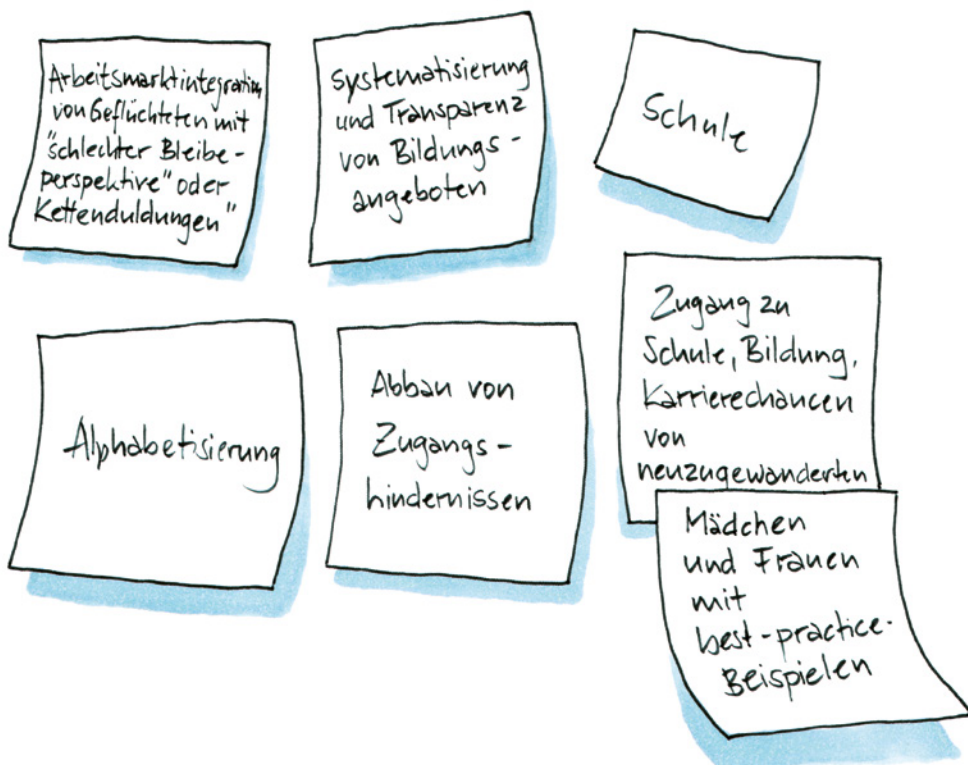 Arbeitsmarktintegration
von Geflüchteten mit
"schlechter Bleibe-
perspektive" oder
Kettenduldungen"
Systematisierung
und Transparenz
von Bildungs-
angeboten
Schule
Alphabetisierung
Abbau von
Zugangs-
hindernissen
Zugang zu
Schule, Bildung,
Karrierechancen
von
neuzugewanderten
Mädchen
und Frauen
mit
best-practice-
Beispielen